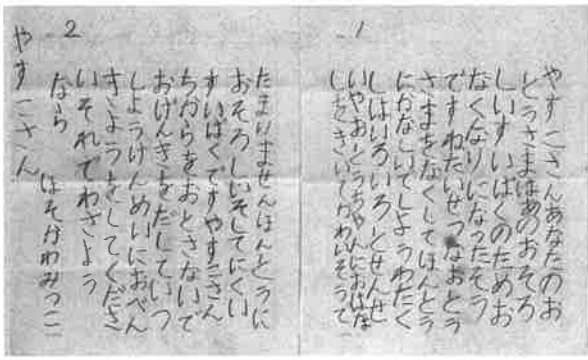 1
やすこさんあなたのお
とうさまはあのおそろ
しいすいばくのためお
なくなりになったそう
ですねたいせつなおとう
さまをなくしてほんとう
にかなしいでしようわたく
しはいろいろとせんせ
いやおとうちやんにおはな
しをきいてかわいそうで
2
たまりませんほんとうに
おそろしいそしてにくい
すいばくですやすこさん
ちからをおとさないで
おげんきをだしていつ
しようけんめいにおべん
きようをしてくださ
いそれでわさよう
なら ほそかわみつこ
やすこさん